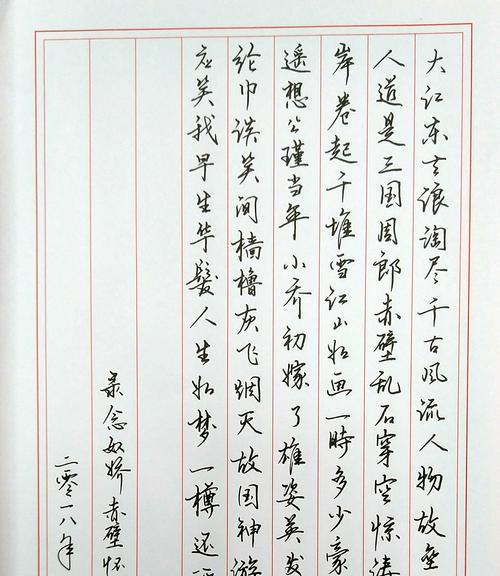 大江东去浪淘尽千古风流人物故垒
人道是三国周郎赤壁乱石穿空惊涛
岸卷起千堆雪江山如画一时多少豪
遥想公瑾当年小乔初嫁了雄姿英发
纶巾谈笑间樯橹灰飞烟灭故国神游
应笑我早生华发人生如梦一樽还
录念奴娇赤壁怀
二零一八年